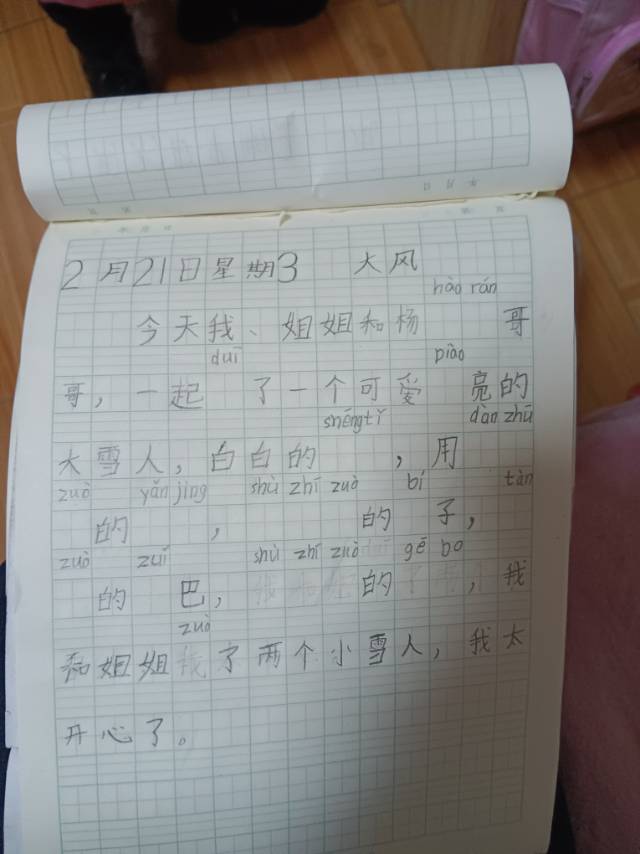 2月21日星期3 大风
hào rán
今天我、姐姐和杨 哥
duī piào
哥，一起 了一个可爱 亮的
shēng tǐ dàn zhū
大雪人，白白的 ，用
zuò yǎn jing shù zhī zuò bí tàn
的 ， 的 子，
zuò zuǐ shù zhī zuò gē bo
的 巴， 的 ，我
zuò
和姐姐 了两个小雪人，我太
开心了。